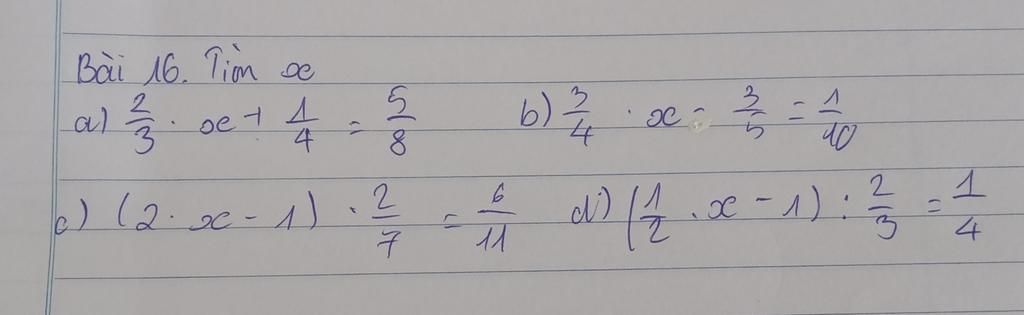 Bài 16. Tìm x
a) 2/3 . x + 1/4 = 5/8 b) 3/4 . x - 3/5 = 1/10
c) (2 . x - 1) . 2/7 = 6/11 d) (1/2 . x - 1) : 2/3 = 1/4